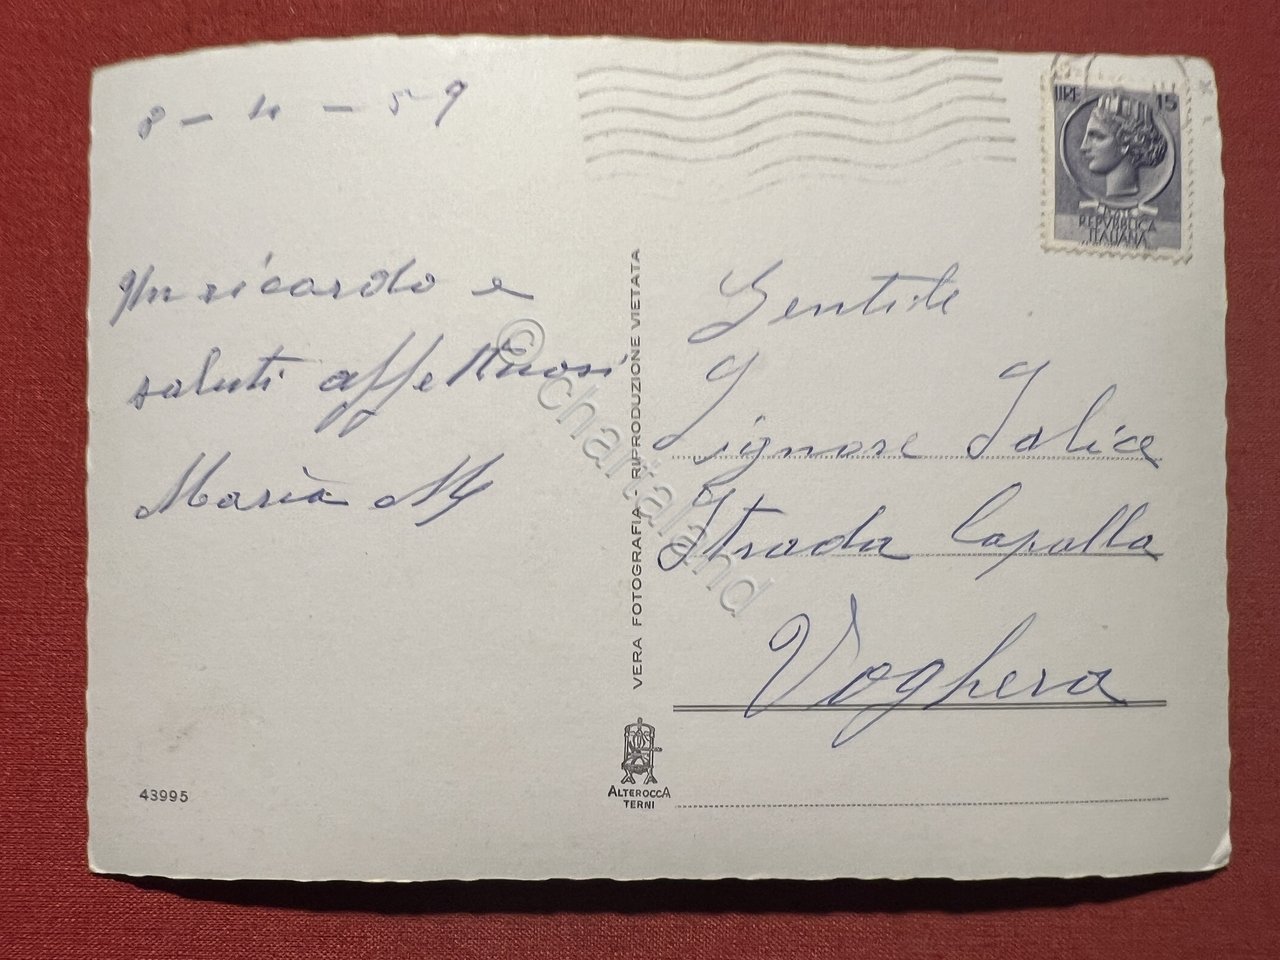 8 - 4 - 59
Un ricordo e
saluti affettuosi
Maria M
LIRE 15
POSTE
REPVBBLICA
ITALIANA
Gentile
Signore Salice
Strada Capalla
Voghera
VERA FOTOGRAFIA - RIPRODUZIONE VIETATA
ALTEROCCA
TERNI
43995
© chartaland